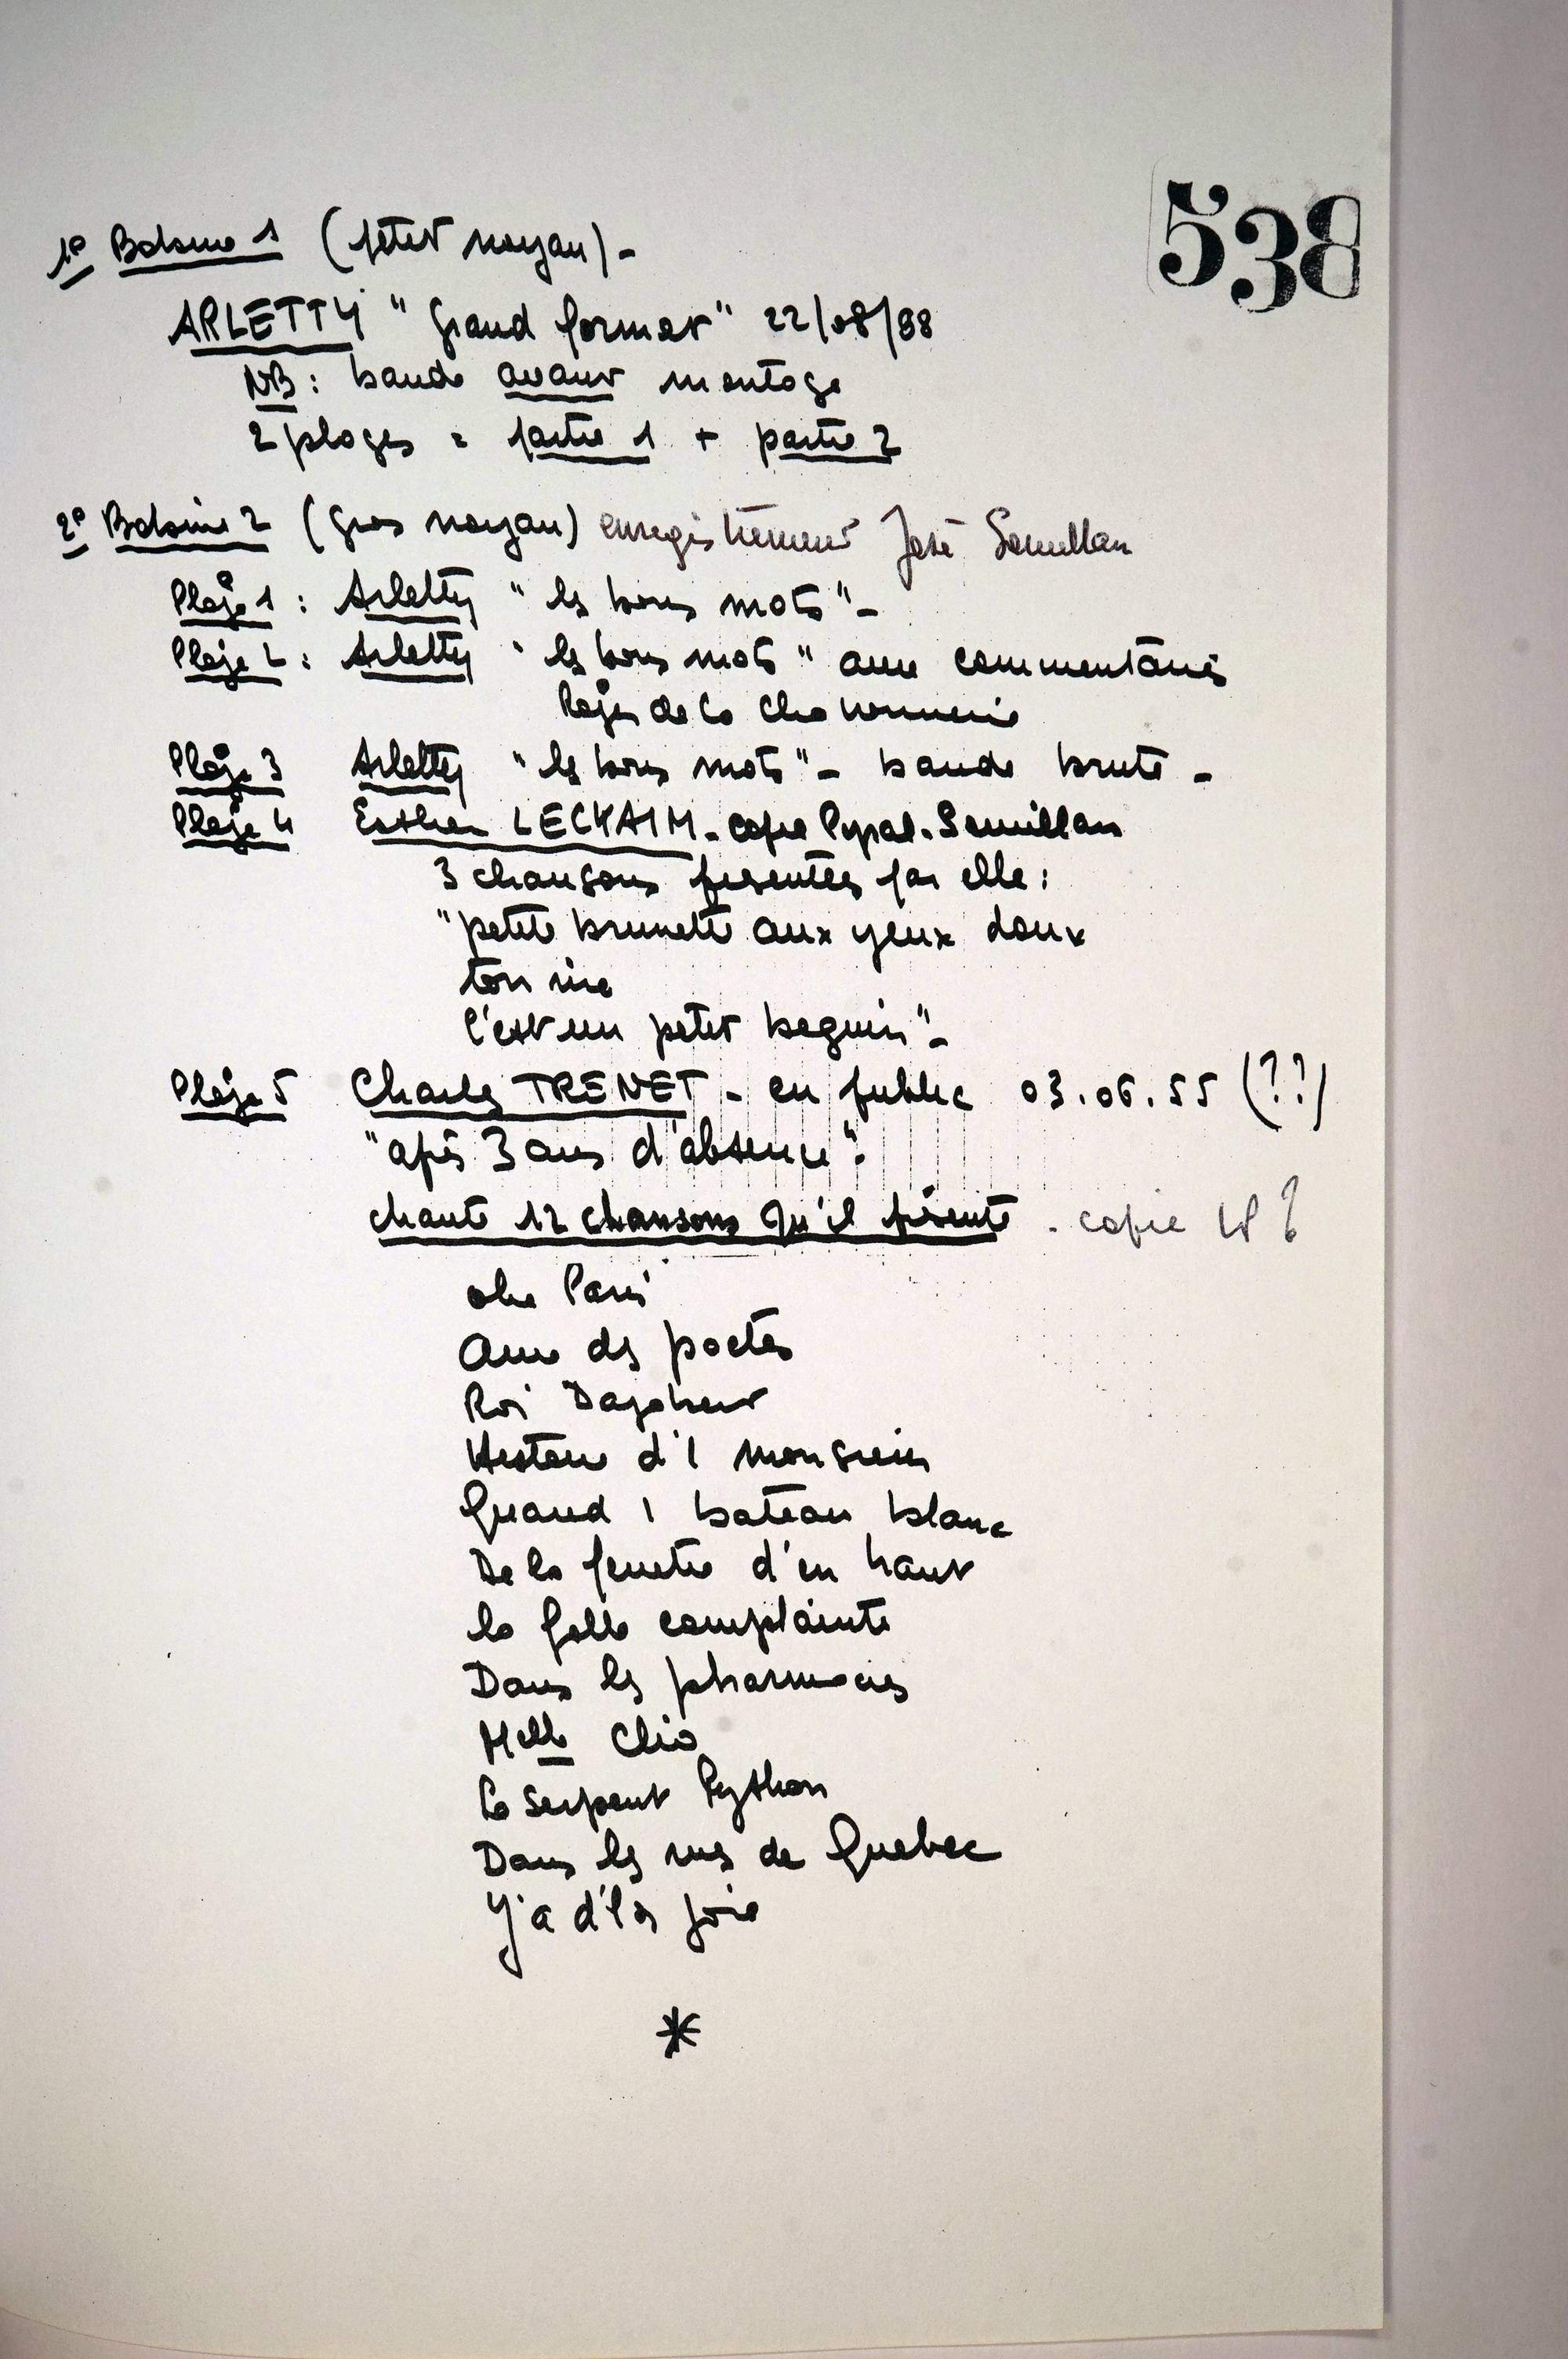 538
1º Bobine 1 (petit noyau) -
ARLETTY "Grand format" 22/08/88
NB : bande avant montage
2 plages = partie 1 + partie 2
2º Bobine 2 (gros noyau) enregistrement José
Plage 1 : Arletty "les bons mots" -
Plage 2 : Arletty "les bons mots" avec commentaires
de la
Plage 3 Arletty "les bons mots" - bande brute -
Plage 4 Esther LECKAIM - copie
3 chansons présentées par elle :
"petite brunette aux yeux doux
ton rire
C'est un petit beguin" -
Plage 5 Charles TRENET - en public 03.06.55 (??)
"après 3 ans d'absence".
chante 12 chansons qu'il présente - copie
ohe Paris
Ame des poetes
Roi Dagobert
Histoire d'1 monsieur
Quand 1 bateau blanc
De la fenetre d'en haut
la folle complainte
Dans les pharmacies
Melle Clio
Le Serpent Python
Dans les rues de Quebec
Y'a d'la joie
*